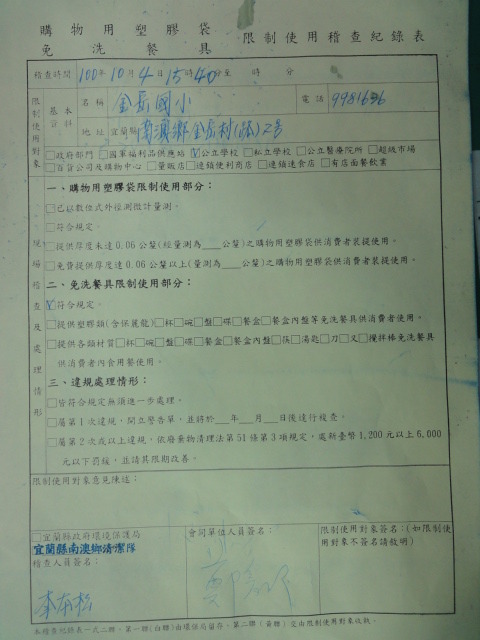 購物用塑膠袋
免洗餐具 限制使用稽查紀錄表
稽查時間 100年10月4日15時40分至 時 分
限制使用對象
基本資料
名稱 金岳國小 電話 9981636
地址 宜蘭縣南澳鄉金岳村(路)2號
□政府部門 □國軍福利品供應站 ☑公立學校 □私立學校 □公立醫療院所 □超級市場
□百貨公司及購物中心 □量販店 □連鎖便利商店 □連鎖速食店 □有店面餐飲業
現場稽查及處理情形
一、購物用塑膠袋限制使用部分：
□已以數位式外徑測微計量測。
□符合規定。
□提供厚度未達0.06公釐(經量測為___公釐)之購物用塑膠袋供消費者裝提使用。
□免費提供厚度達0.06公釐以上(量測為___公釐)之購物用塑膠袋供消費者裝提使用。
二、免洗餐具限制使用部分：
☑符合規定。
□提供塑膠類(含保麗龍)□杯□碗□盤□碟□餐盒□餐盒內盤等免洗餐具供消費者使用。
□提供各類材質□杯□碗□盤□碟□餐盒□餐盒內盤□筷□湯匙□刀□叉□攪拌棒免洗餐具
供消費者內食用餐使用。
三、違規處理情形：
□皆符合規定無須進一步處理。
□屬第1次違規，開立警告單，並將於___年___月___日後進行複查。
□屬第2次或以上違規，依廢棄物清理法第51條第3項規定，處新臺幣1,200元以上6,000
元以下罰鍰，並請其限期改善。
限制使用對象意見陳述：
□宜蘭縣政府環境保護局
宜蘭縣南澳鄉清潔隊
稽查人員簽名：
會同單位人員簽名：
限制使用對象簽名：(如限制使
用對象不簽名請敘明)
本稽查紀錄表一式二聯，第一聯(白聯)由環保局留存，第二聯(黃聯)交由限制使用對象收執。